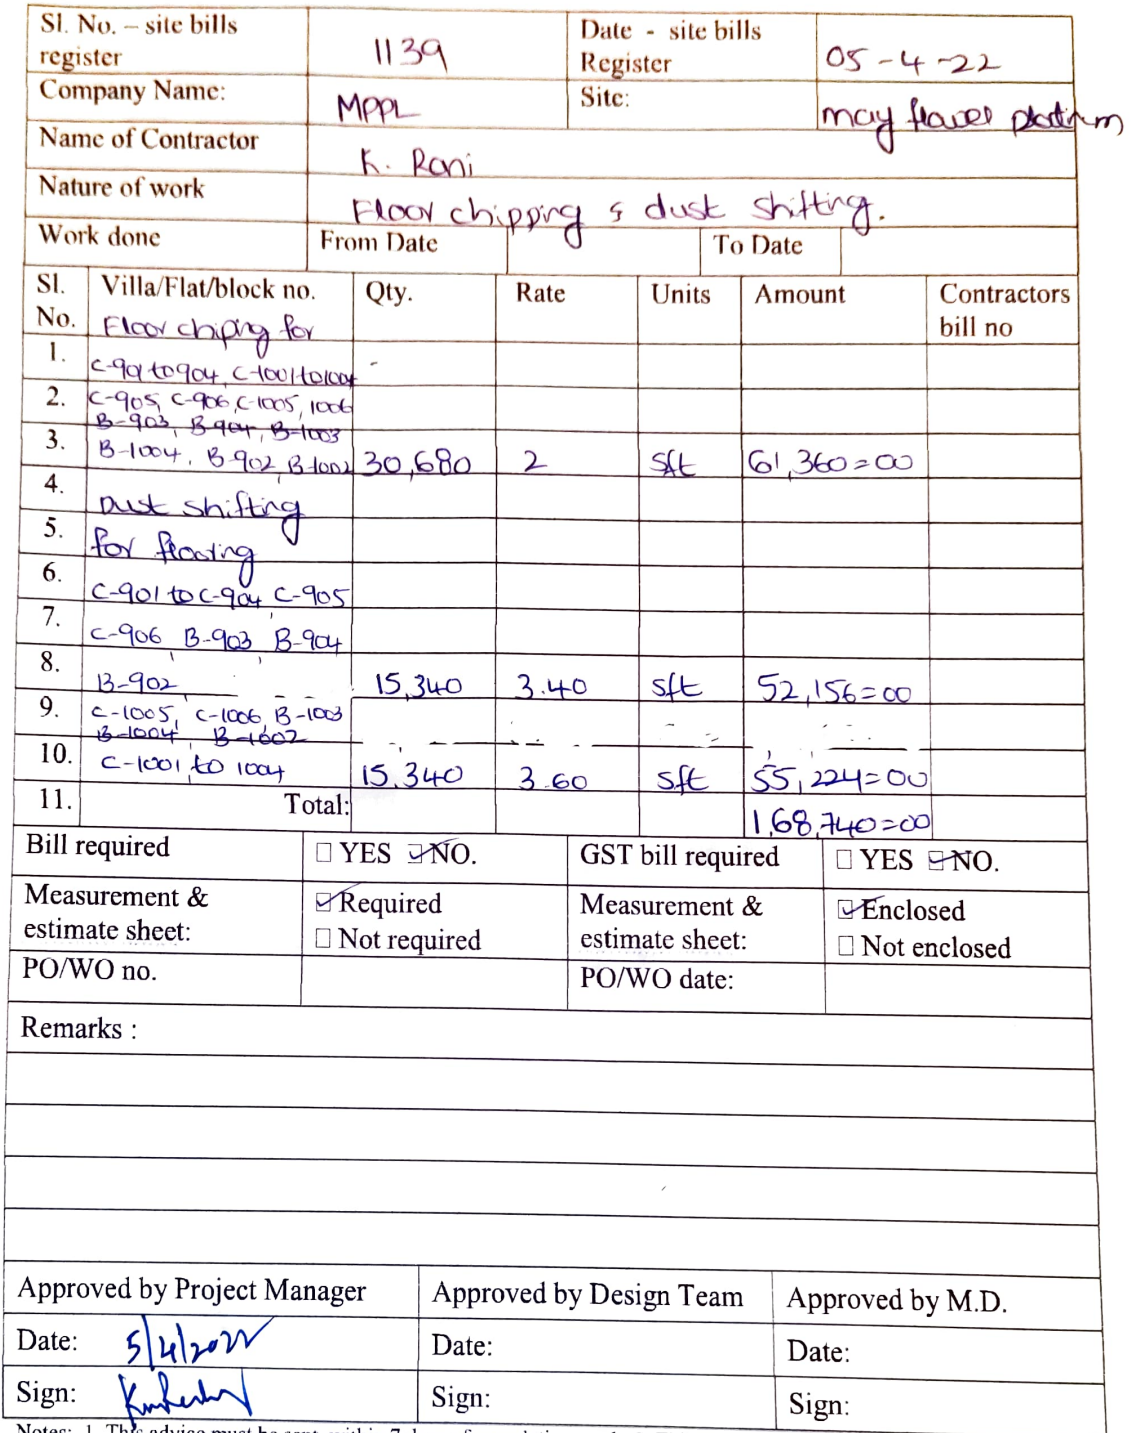 Sl. No. – site bills register 1139 Date - site bills Register 05-4-22
Company Name: MPPL Site: may flower platinum
Name of Contractor K. Rani
Nature of work Floor chipping & dust shifting.
Work done From Date To Date
Sl. No. Villa/Flat/block no. Qty. Rate Units Amount Contractors bill no
Floor chiping for
1. C-901 to 904, C-1001 to 1004
2. C-905, C-906, C-1005, 1006
B-903, B-904, B-1003
3. B-1004, B-902, B-1002 30,680 2 sft 61,360=00
4. Dust shifting
5. for flooring
6. C-901 to C-904 C-905
7. C-906, B-903, B-904
8. B-902 15,340 3.40 sft 52,156=00
9. C-1005, C-1006, B-1003
B-1004, B-1002
10. C-1001, to 1004 15,340 3.60 sft 55,224=00
11. Total: 1,68,740=00
Bill required ☐ YES ☑ NO. GST bill required ☐ YES ☑ NO.
Measurement & estimate sheet: ☑ Required Measurement & estimate sheet: ☑ Enclosed
☐ Not required ☐ Not enclosed
PO/WO no. PO/WO date:
Remarks :
Approved by Project Manager Approved by Design Team Approved by M.D.
Date: 5/4/2022 Date: Date:
Sign: Sign: Sign: